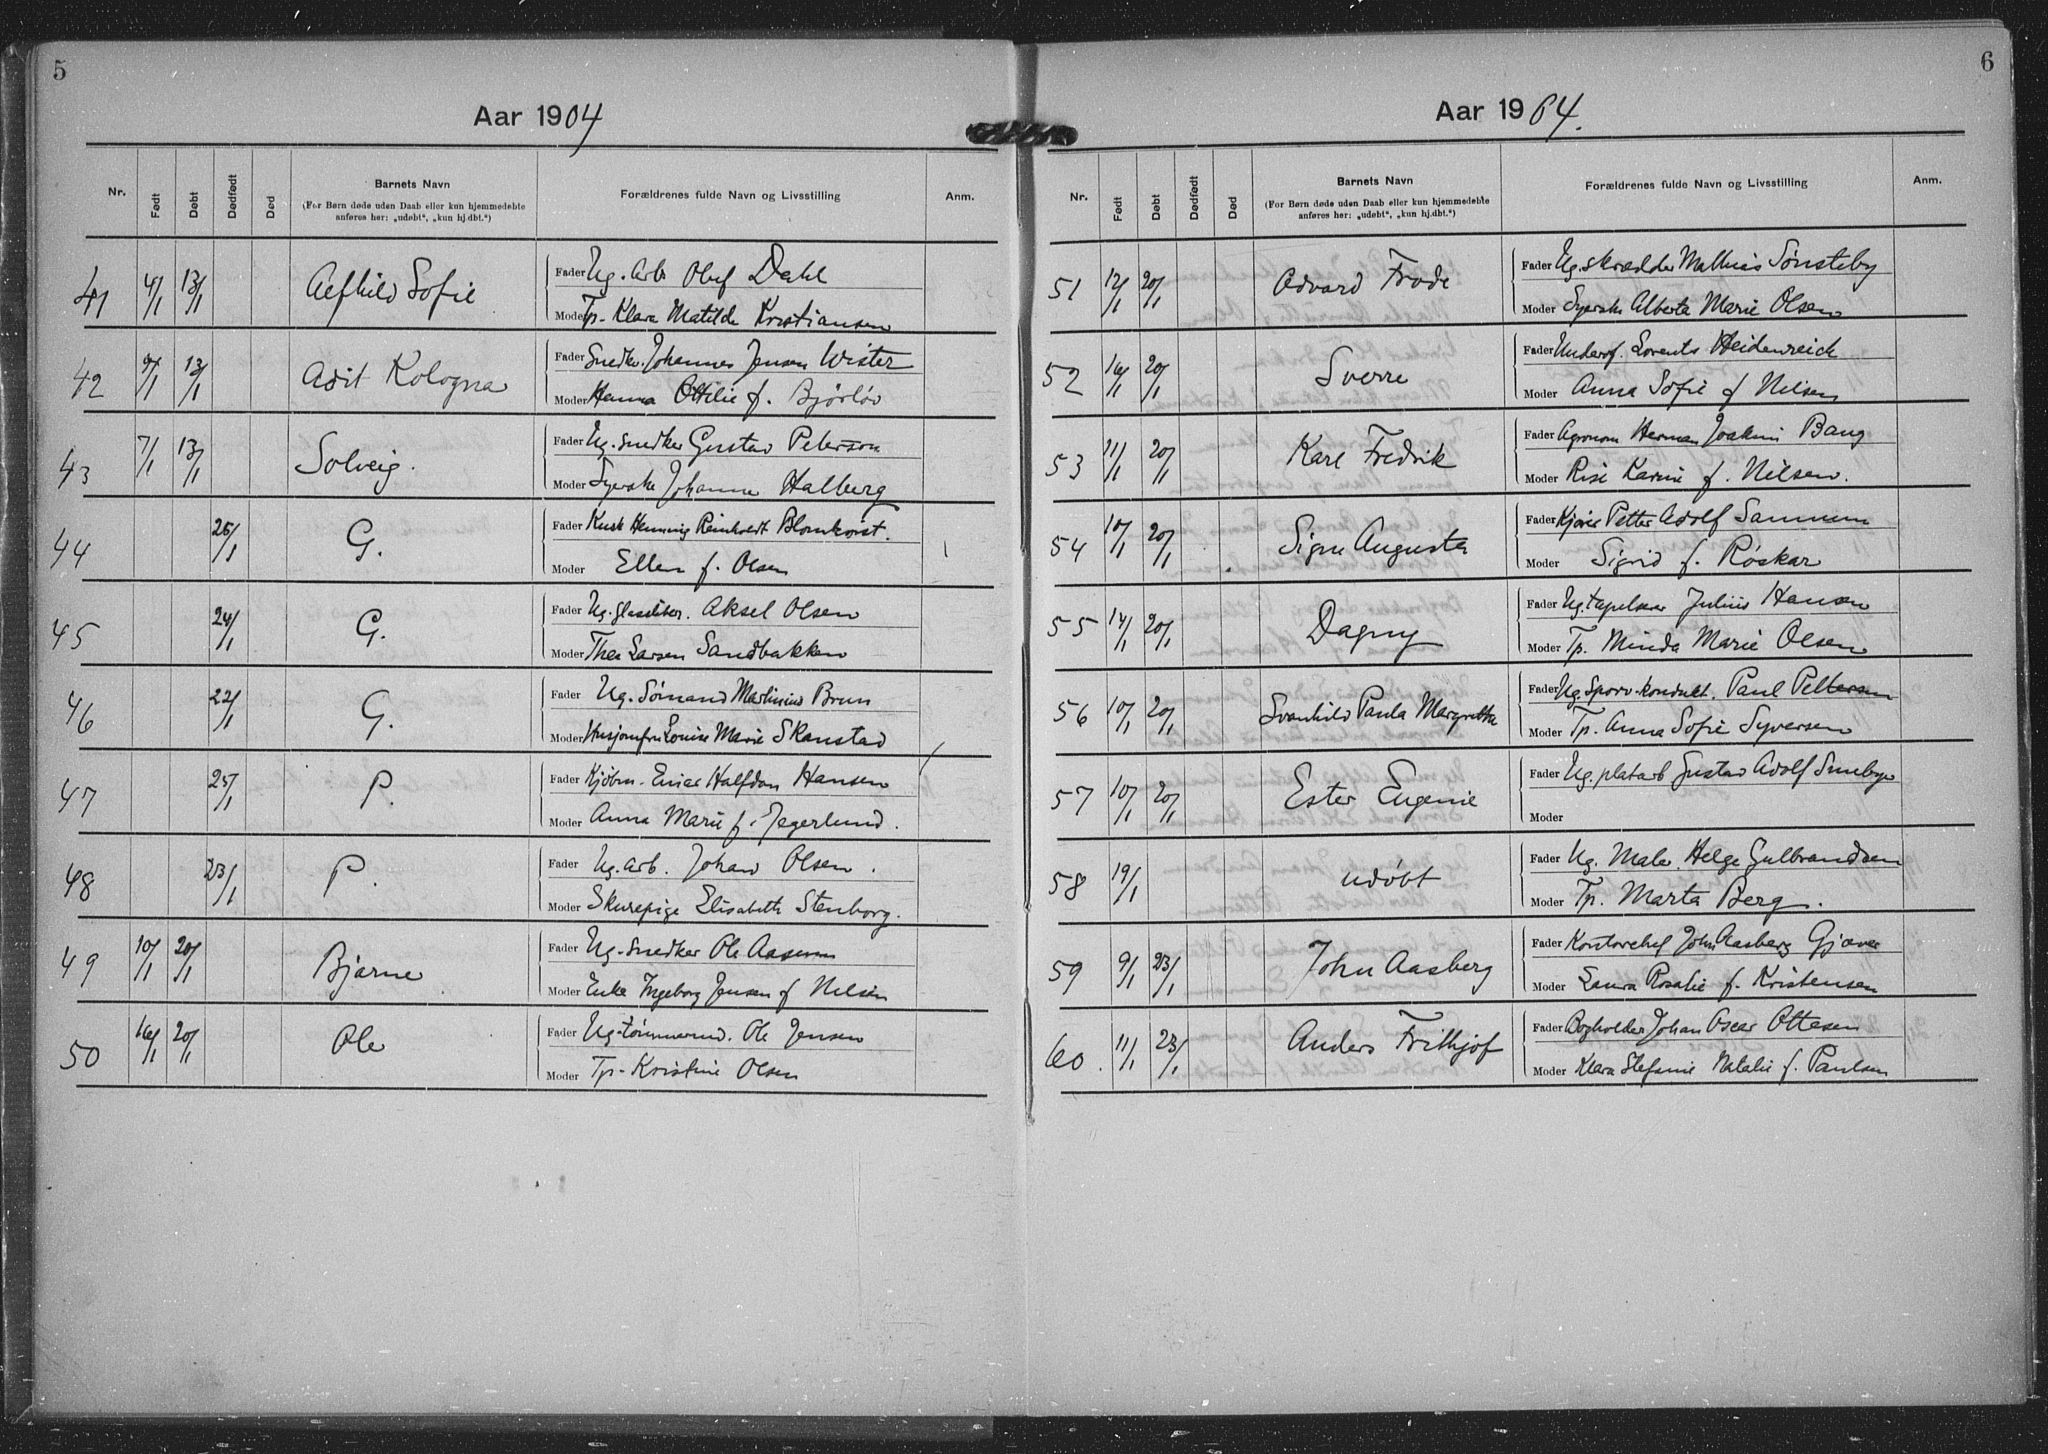 5
Aar 1904
Nr.
Født
Døbt
Dødfødt
Død
Barnets Navn
(For Børn døde uden Daab eller kun hjemmedøbte
anføres her: „udøbt“, „kun hj.dbt.“)
Forældrenes fulde Navn og Livsstilling
Anm.
41 4/1 13/1 Alfhild Sofie
Fader Ug. Arb. Oluf Dahl
Moder Tp. Klara Matilde Kristiansen
42 9/1 13/1 Adit Kologna
Fader Snedk. Johannes Jensen Wister
Moder Hanna Ottilie f. Bjørløv
43 7/1 13/1 Solveig.
Fader Ug. snedker Gustav Peterson
Moder Syerske Johanne Halberg
44 26/1 G.
Fader Kusk Henning Reinholdt Blomkvist.
Moder Ellen f. Olsen
45 24/1 G.
Fader Ug. glassliber. Aksel Olsen
Moder Thea Larsen Sandbakken
46 22/1 G.
Fader Ug. Sømand Martinius Brun
Moder Husjomfru Louise Marie Skanstad
47 25/1 P.
Fader Kjøbm. Einar Halfdan Hansen
Moder Anna Marie f. Jegerlund.
48 23/1 P.
Fader Ug. Arb. Johan Olsen.
Moder Skurepige Elisabeth Stenborg.
49 10/1 20/1 Bjarne
Fader Ug. snedker Ole Aasen
Moder Enke Ingeborg Jensen f Nilsen
50 16/1 20/1 Ole
Fader Ug. tømmermd. Ole Jensen
Moder Tp. Kristine Olsen
6
Aar 1904.
Nr.
Født
Døbt
Dødfødt
Død
Barnets Navn
(For Børn døde uden Daab eller kun hjemmedøbte
anføres her: „udøbt“, „kun hj.dbt.“)
Forældrenes fulde Navn og Livsstilling
Anm.
51 12/1 20/1 Advard Frode
Fader Ug. skrædder Mathias Sønsteby
Moder Syerske Alberta Marie Olsen
52 16/1 20/1 Sverre
Fader Underof. Lorents Heidenreich
Moder Anna Sofie f Nilsen
53 11/1 20/1 Karl Fredrik
Fader Agronom Herman Joakim Bang
Moder Risi Karine f. Nilsen.
54 10/1 20/1 Signe Augusta
Fader Petter Adolf
Moder Sigrid f. Røskar
55 14/1 20/1 Dagny
Fader Ug. tapetserer Julius Hansen
Moder Tp. Minda Marie Olsen
56 10/1 20/1 Svanhild Paula Margretha
Fader Ug. Sporv.kondukt. Paul Pettersen
Moder Tp. Anna Sofie Syversen
57 10/1 20/1 Ester Eugenie
Fader Ug. platarb Gustav Adolf Smebye
Moder
58 19/1 udøbt
Fader Ug. Maler Helge Gulbrandsen
Moder Tp. Marta Berg.
59 9/1 23/1 John Aasberg
Fader Kontorchef John Aasberg Gjæver
Moder Laura Rosalie f. Kristensen
60. 11/1 23/1 Anders Frithjof
Fader Bogholder Johan Oscar Ottesen
Moder Klara Stefanie Natalie f. Paulsen